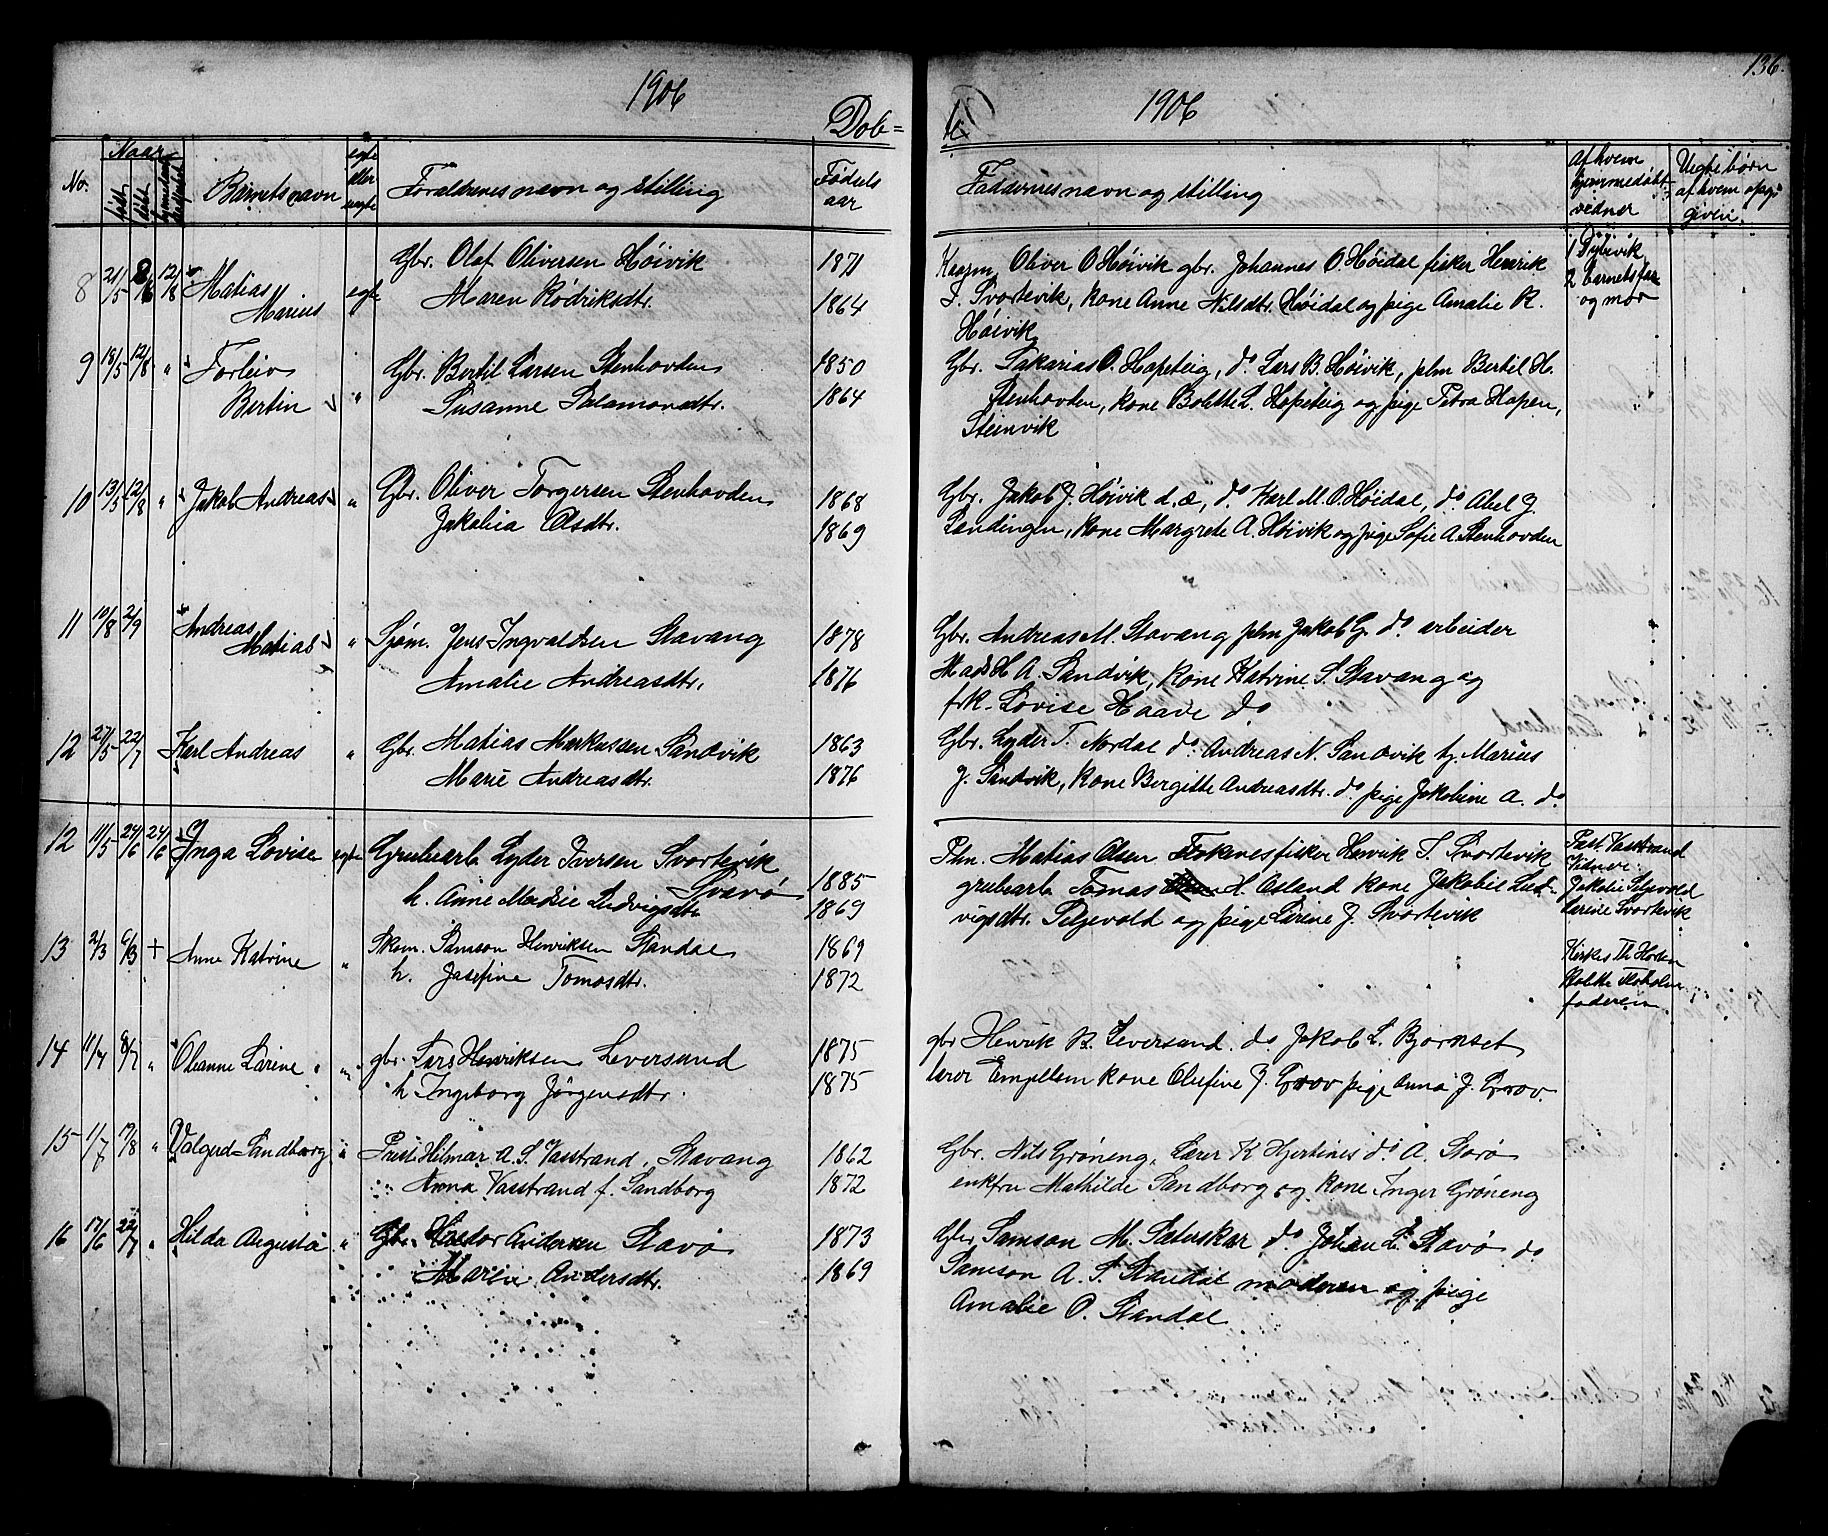 136.
1906
1906
Dob=
No.
Naar
født
døbt
Barnets navn
egte eller uegte
Foraldrenes navn og stilling
Fødsels aar
Faddernes navn og stilling
af hvem hjemmedøbt vidner
Uegte børn af hvem opgi given.
8 21/5 12/8 Matias Marius egte Gbr. Olaf Oliversen Høivik 1871
Maren Rødriksdtr. 1864
Oliver O Høivik gbr. Johannes O. Høidal fisker Henrik
S. Svortevik, kone Anne Nilsdtr. Høidal og pige Amalie R.
Høivik
1 Dybevik
2 barnets far
og mor
9 18/5 12/8 " Torleiv Bertin " Gbr. Bertil Larsen Stenhovden 1850
Susanne Salamondtr. 1864
Gbr. Sakarias O. Hopeteig, do Lars B. Høivik, plm Bertil H.
Stenhovden, kone Bolette L. Hopeteig og pige Petra Hopen,
Steinvik
10 13/5 12/8 " Jakob Andreas " Gbr. Oliver Torgersen Stenhovden 1868
Jakobia Olsdtr. 1869
Gbr. Jakob J. Høivik d.æ., do Karl M. O. Høidal, do Abel J.
Sandingen, kone Margrete A. Høivik og pige Sofie A. Stenhovden
11 10/8 2/9 Andreas Matias " Sjøm. Jens Ingvaldsen Stavang 1878
Amalie Andreasdtr. 1876
Gbr. Andreas M. Stavang plm Jakob G. do arbeider
Mads H A. Sandvik, kone Katrine S. Stavang og
frk. Lovise Haave do
12 27/5 22/7 Karl Andreas " Gbr. Matias Markussen Sandvik 1863
Marie Andreasdtr. 1876
Gbr. Lyder T. Nordal do Andreas N. Sandvik tj. Marius
J. Sandvik, kone Bergitte Andreasdtr. do pige Jakobine A. do
12 11/5 24/6 24/6 Inga Lovise egte Grubearb Lyder Iversen Svortevik
Svanø 1885
h. Anne Marie Ludvigsdtr 1869
Plm. Matias Olsen Floknes fisker Henrik S. Svortevik
grubearb Tomas H. Asland kone Jakobie Lud-
vigsdtr. Seljevold og pige Larine J. Svortevik
Past. Vasstrand
Vidner
Jakobie Seljevold
Larine Svortevik
13 2/3 6/3 + Anne Katrine " Skom. Samson Henriksen Standal 1869
h. Josefine Tomasdtr. 1872
Kirkes. Th. Horten
faderen
14 11/4 8/7 " Oleanne Larine " gbr. Lars Henriksen Leversund 1875
h Ingeborg Jörgensdtr. 1875
gbr Henrik B. Leversund. do Jakob L. Bjørnset
lærer Empellem kone Olufine J. Grov pige Anna J. Grov.
15 11/7 19/8 " Valgerd Sandborg " Prest Hilmar A. S. Vasstrand, Stavang 1862
Anna Vasstrand f. Sandborg 1872
Gbr. Nils Grøneng, Lærer K Hjertines do A. Storø
enkfru Mathilde Sandborg og kone Inger Grøneng
16 17/6 22/7 " Hilda Augusta " Gbr. Kastor Andersen Stavø 1873
Maria Andersdtr. 1869
Gbr. Samson M. Sæterskar do Johan L. Stavø do
Samson A. S. Standal moderen og pige
Amalie O. Standal